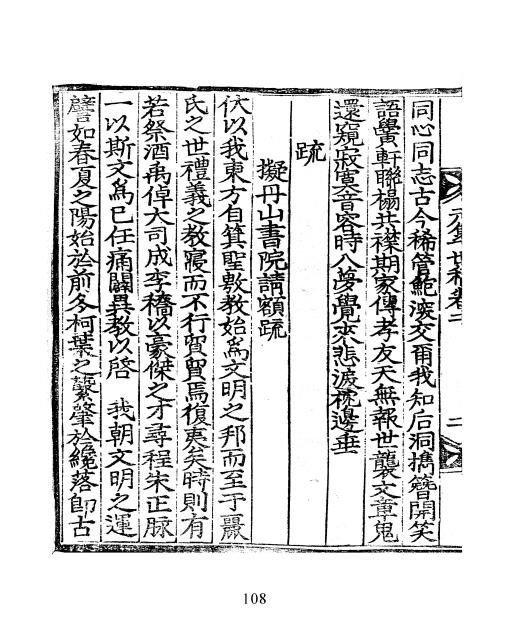 世稿卷二
二
同心同志古今稀管鮑深交甭我知后洞携簪開笑
語黌軒聯榻共襟期家傳孝友天無報世襲文章鬼
還窺寂寞音容時入夢覺來悲淚枕邊垂
疏
擬丹山書院請額疏
伏以我東方自箕聖敷敎始爲文明之邦而至于麗
氏之世禮義之敎寢而不行貿貿焉復夷矣時則有
若祭酒禹倬大司成李穡以豪傑之才尋程朱正脉
一以斯文爲已任痛闢異敎以啓 我朝文明之運
譬如春夏之陽始於前冬柯葉之蘩肇於纔落卽古
108